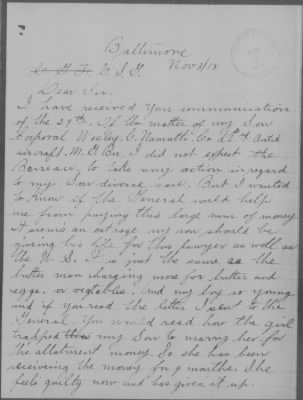 Baltimore
Nov 3/18
Dear Sir.
I have received your communication
of the 29th. Of the matter of my Son
Corporal Wesley, C. Namuth, Co
aircraft. M. G. Bn. I did not expect the
Bereau, to take any action in regard
to my Son divorce case. But I wanted
to know if the General could help
me from paying this large sum of money
It seems an outrage my son should be
giving his life for this lawyer as well as
the U. S. It is just the same as the
butter man charging more for butter and
eggs. or vegtables. And my boy so young
and if you read the letter I sent to the
General. You would read how the girl
trapped my Son to marry her for
the allotment money. So she has been
receiveing the money for 9 months. She
feels guilty now and has given it up.